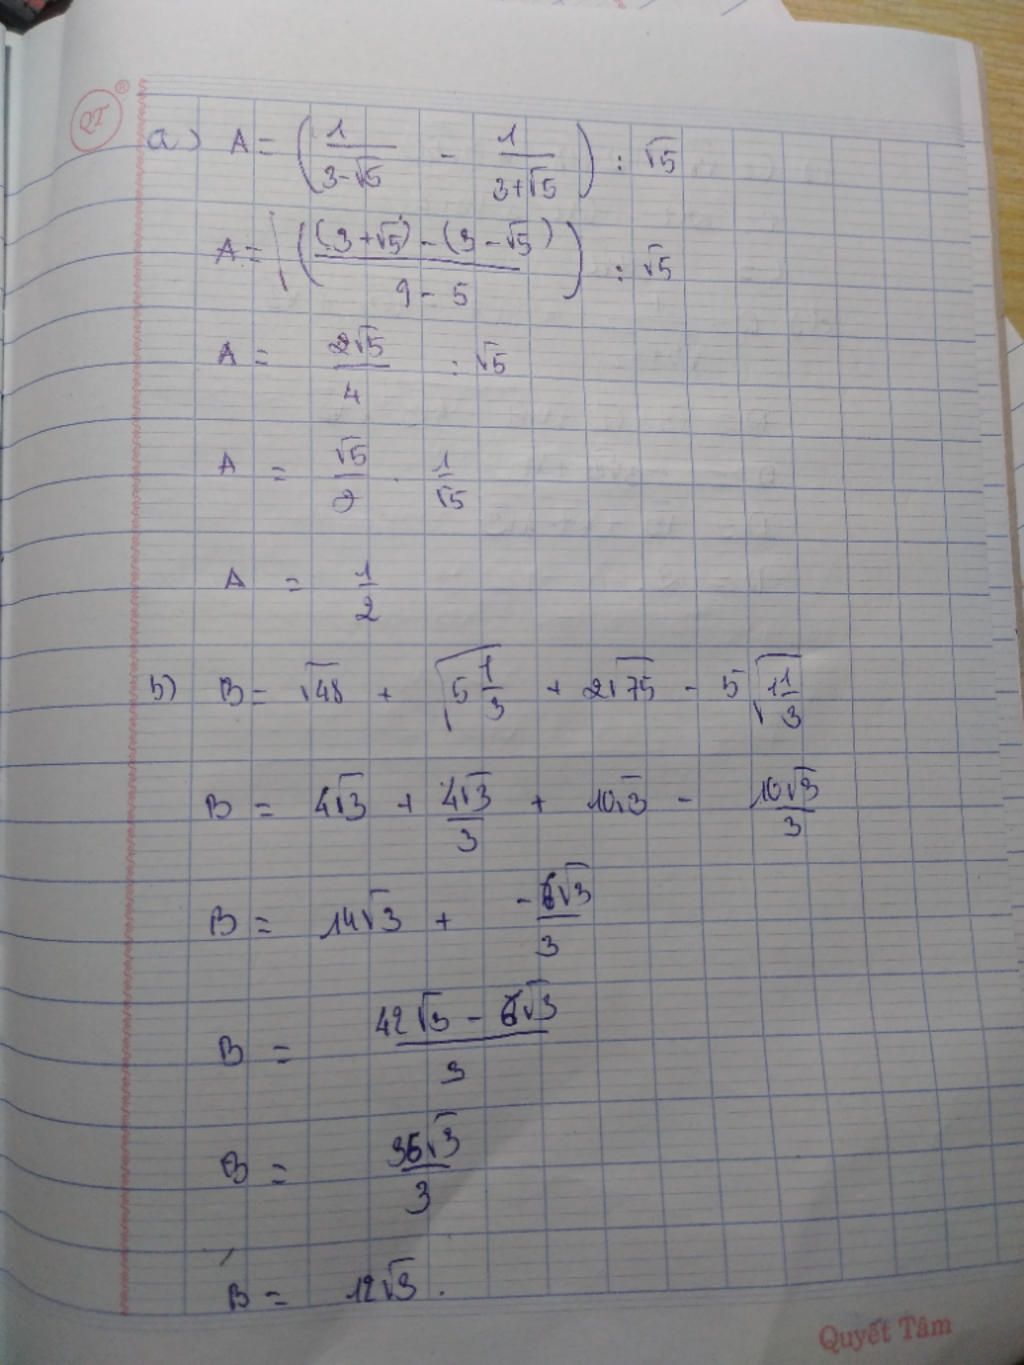 QT ®
a) A = (1/(3-√5) - 1/(3+√5)) : √5
A = (((3+√5) - (3-√5))/(9-5)) : √5
A = 2√5/4 : √5
A = √5/2 . 1/√5
A = 1/2
b) B = √48 + √(5 1/3) + 2√75 - 5√(1 1/3)
B = 4√3 + 4√3/3 + 10√3 - 10√3/3
B = 14√3 + -6√3/3
B = (42√3 - 6√3)/3
B = 36√3/3
B = 12√3.
Quyết Tâm